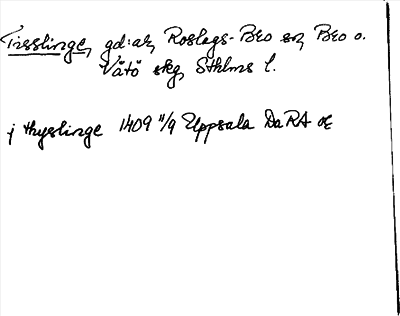 Tisslinge, gd:ar, Roslags-Bro sn, Bro o.
Vätö skg, Sthlms l.
j thyslinge 1409 11/9 Uppsala DaRA or